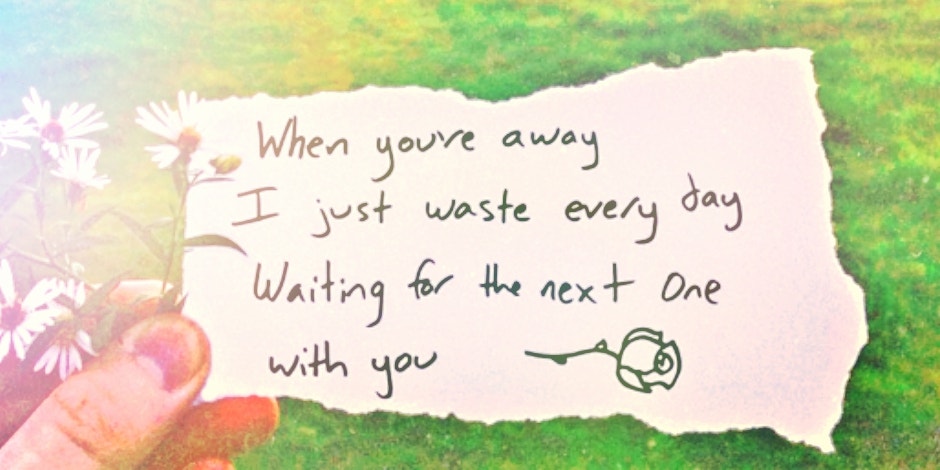 When you're away
I just waste every day
Waiting for the next One
with you